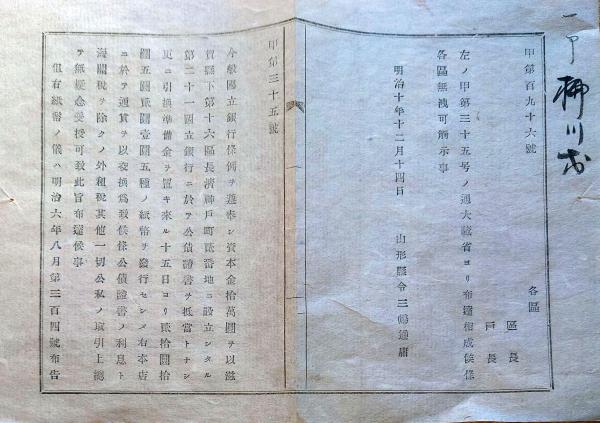 甲第百九十六號
各區
區長
戸長
左ノ甲第三十五号ノ通大藏省ヨリ布達相成候條
各區無洩可觸示事
明治十年十二月十四日
山形縣令三島通庸
甲第三十五號
今般國立銀行條例ヲ遵奉シ資本金拾萬圓ヲ以滋
賀縣下第十六區長濱神戸町貳番地ニ設立シタル
第二十一國立銀行ニ於テ公債證書ヲ抵當トナシ
更ニ引換準備金ヲ置キ來ル十五日ヨリ貳拾圓拾
圓五圓貳圓壹圓五種ノ紙幣ヲ發行セシメ右本店
ニ於テ通貨ヲ以交換爲致候條公債證書ノ利息ト
海關税ヲ除クノ外租税其他一切公私ノ取引上總
テ無疑念受授可致此旨布達候事
但右紙幣ノ儀ハ明治六年八月第三百四號布告